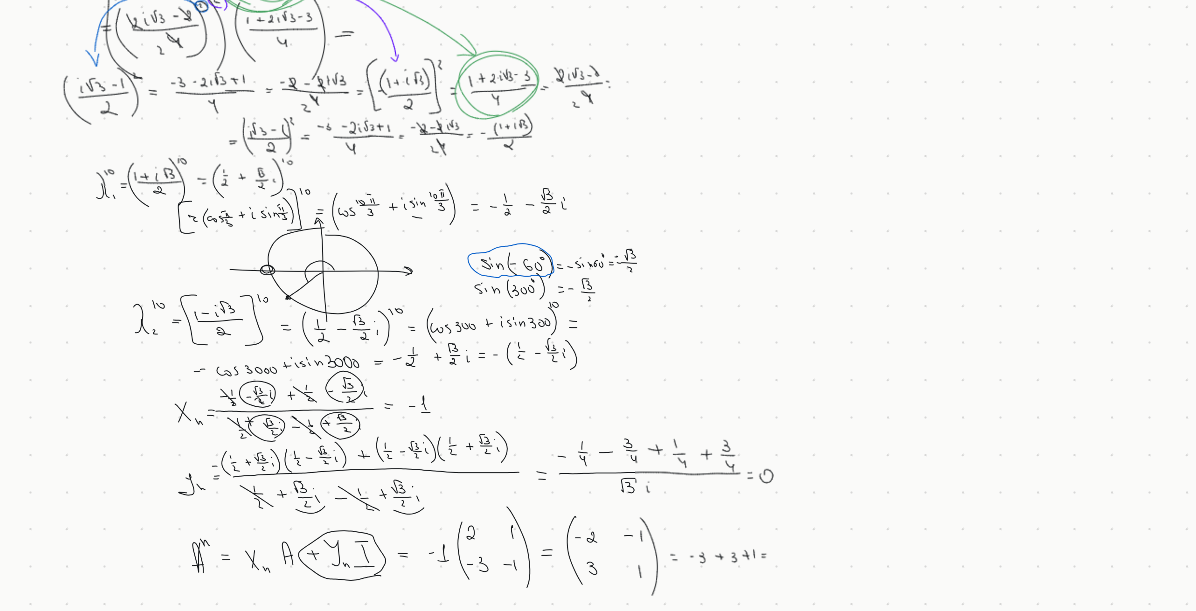 = ((2i√3 - 2)/4) ((1 + 2i√3 - 3)/4) =
((i√3 - 1)/2)² = (-3 - 2i√3 + 1)/4 = (-2 - 2i√3)/4 = [(1 + i√3)/2]² = (1 + 2i√3 - 3)/4 = (2i√3 - 2)/4 =
= ((i√3 - 1)/2)² = (-3 - 2i√3 + 1)/4 = (-2 - 2i√3)/4 = -(1 + i√3)/2
λ₁¹⁰ = ((1 + i√3)/2)¹⁰ = (1/2 + √3/2 i)¹⁰
[r(cos π/3 + i sin π/3)]¹⁰ = (cos 10π/3 + i sin 10π/3) = -1/2 - √3/2 i
sin(-60°) = -sin 60° = -√3/2
sin(300°) = -√3/2
λ₂¹⁰ = [(1 - i√3)/2]¹⁰ = (1/2 - √3/2 i)¹⁰ = (cos 300 + i sin 300)¹⁰ =
- cos 3000 + i sin 3000 = -1/2 + √3/2 i = -(1/2 - √3/2 i)
Xₙ = (-1/2 - √3/2 i + 1/2 - √3/2 i)/(1/2 + √3/2 i - 1/2 + √3/2 i) = -1
yₙ = (-(1/2 + √3/2 i)(1/2 - √3/2 i) + (1/2 - √3/2 i)(1/2 + √3/2 i))/(1/2 + √3/2 i - 1/2 + √3/2 i) = (-1/4 - 3/4 + 1/4 + 3/4)/(√3 i) = 0
Aⁿ = Xₙ A + Yₙ I = -1 (2 1 / -3 -1) = (-2 -1 / 3 1) = -3 + 3 + 1 =